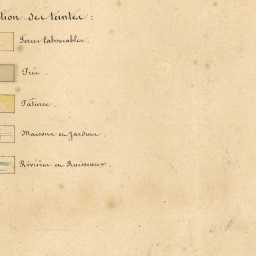 tion des teintes :
Terres labourables .
Prés .
Pâtures .
Maisons et Jardins .
Rivières et Ruisseaux .